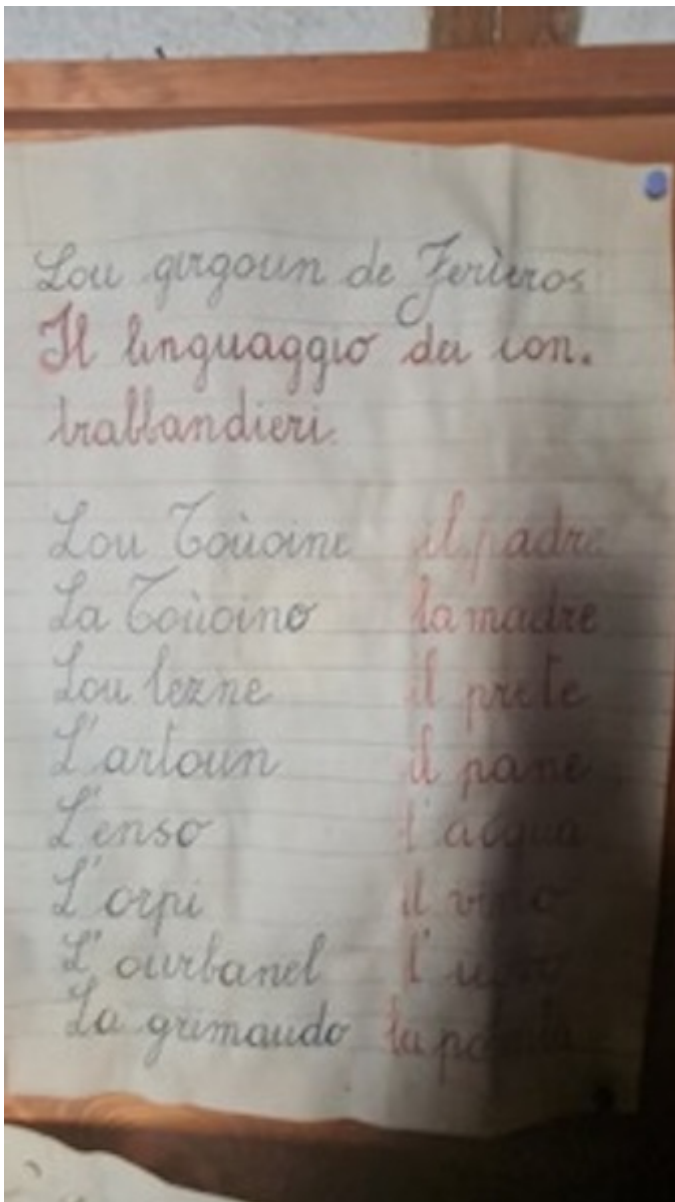 Lou girgoun de Ferieros
Il linguaggio dei con.
trabbandieri.
Lou Toùoine il padre
La Toùoino la madre
Lou lezne il prete
L'artoun il pane
L'enso l'acqua
L'orpi il vino
L'ourbanel l'uovo
La grimaudo la